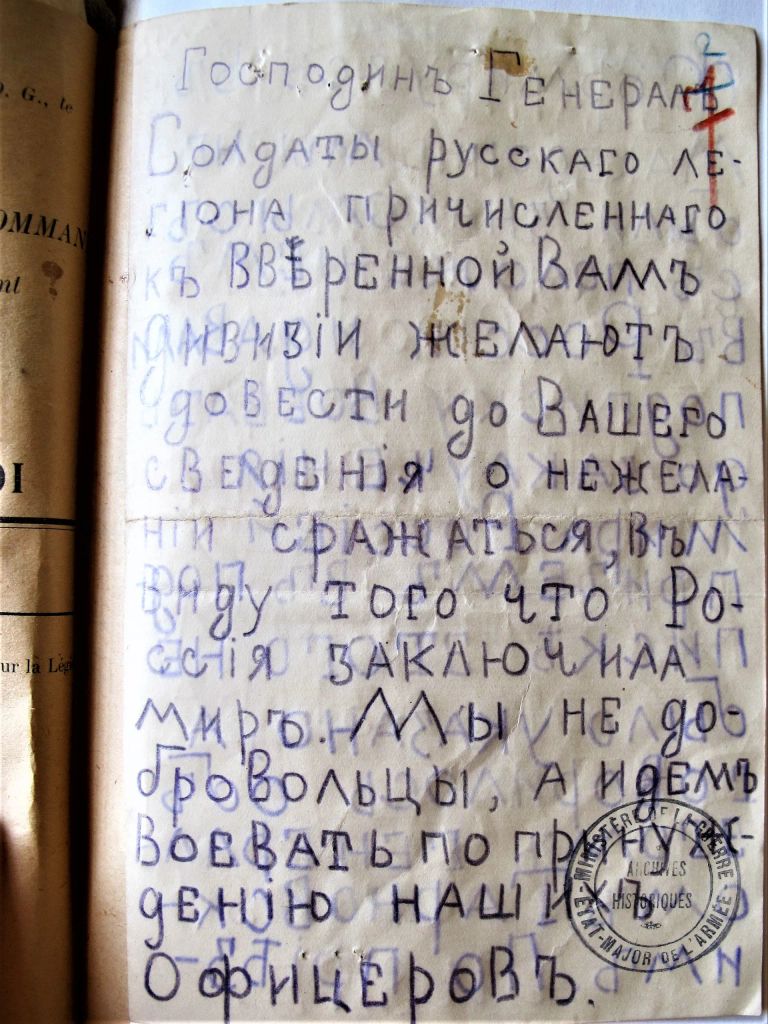 2
1
Господинъ Генералъ
Солдаты русскаго ле-
гіона причисленнаго
къ ввѣренной Вамъ
дивизіи желаютъ
довести до Вашего
сведенія о нежела-
ніи сражаться, въ
виду того что Ро-
ссія заключила
миръ. Мы не до-
бровольцы, а идемъ
воевать по принуж-
денію нашихъ
Офицеровъ.
MINISTÈRE DE LA GUERRE
ARCHIVES
HISTORIQUES
ETAT-MAJOR DE L'ARMÉE
G., le
OMMAN
nt
OI
ur la Légi